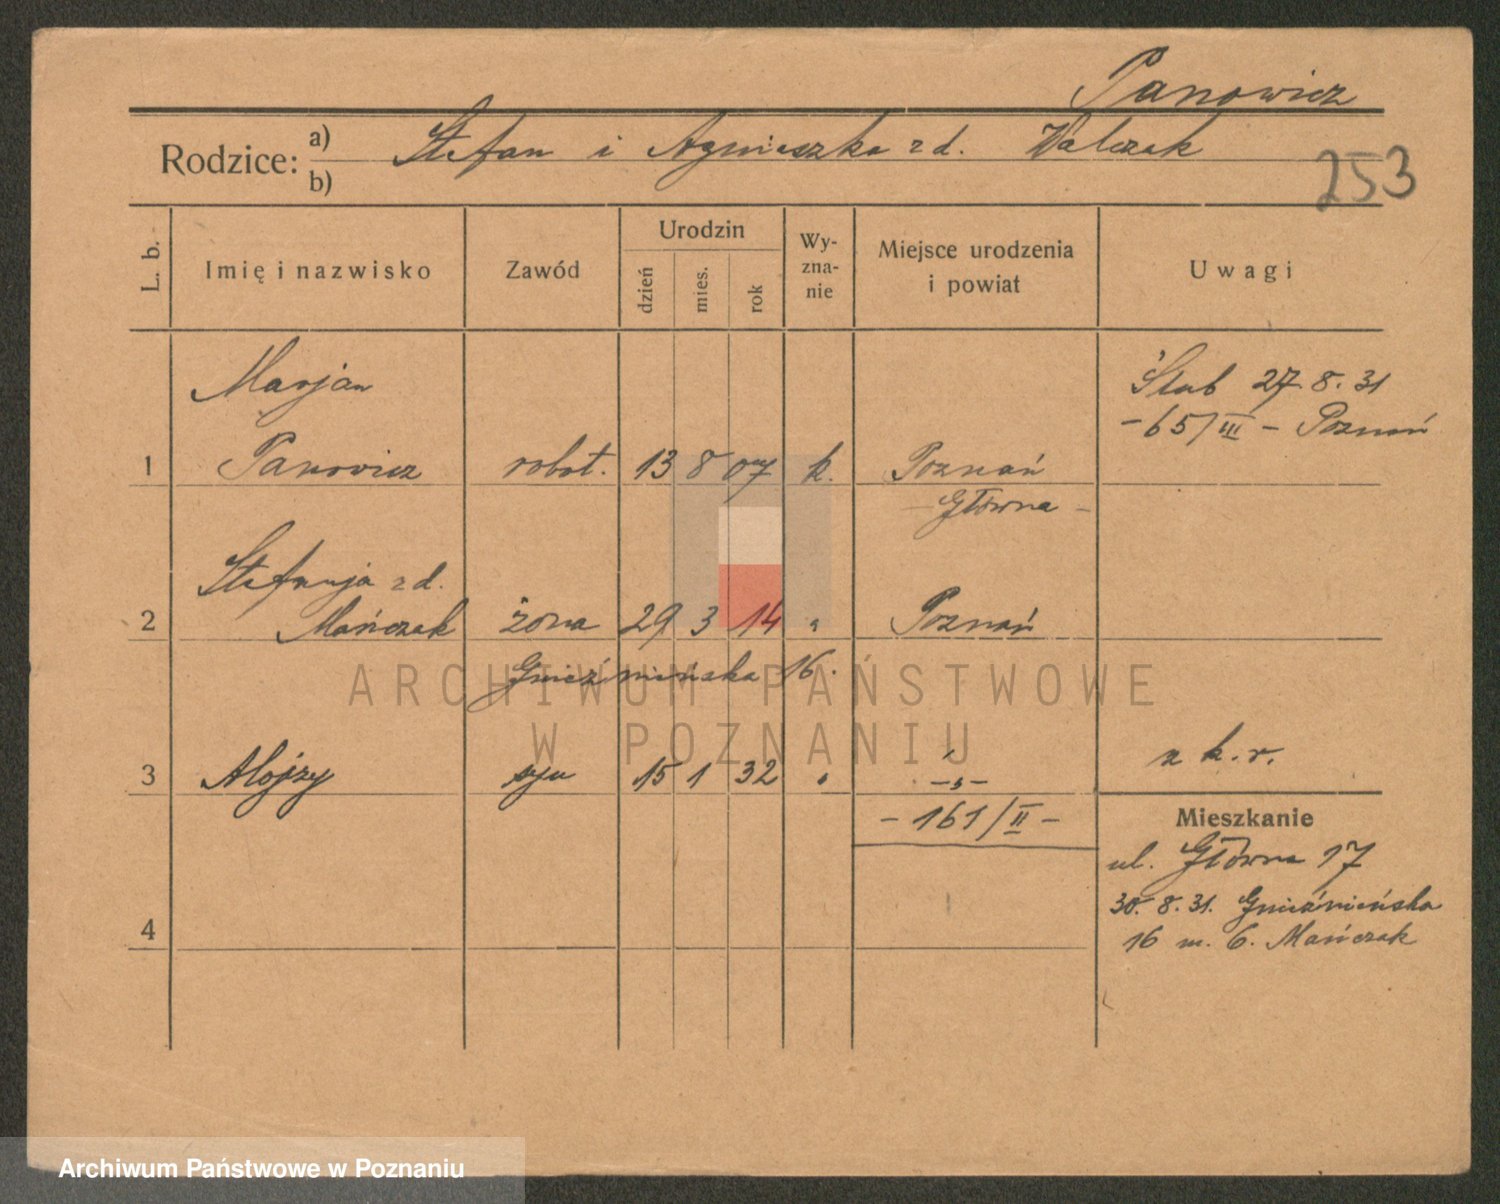 Panowicz
Rodzice: a) Stefan i Agnieszka z d. Walczak
b)
253
L. b.
Imię i nazwisko
Zawód
Urodzin
dzień
mies.
rok
Wy-
zna-
nie
Miejsce urodzenia
i powiat
Uwagi
Marjan
Ślub 27.8.31
-65/III- Poznań
1 Panowicz robot. 13 8 07 k. Poznań
- Główna -
Stefanja z d.
2 Mańczak żona 29 3 14 " Poznań
Gnieźnieńska 16.
3 Alojzy syn 15 1 32 " -"- z k. r.
- 161/II -
Mieszkanie
ul. Główna 17
30.8.31. Gnieźnieńska
16 m. 6. Mańczak
4
ARCHIWUM PAŃSTWOWE
W POZNANIU
Archiwum Państwowe w Poznaniu